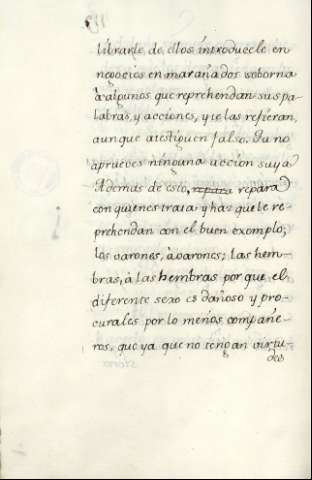 librarle de ellos introducele en
negocios enmarañados soborna
à algunos que reprehendan sus pa-
labras, y acciones, y te las refieran,
aunque atestiguen falso. Tu no
apruebes ninguna accion suya
Ademas de esto, repara repara
con quienes trata y haz que le re-
prehendan con el buen exemplo;
los varones, à varones; las hem-
bras, à las hembras por que el
diferente sexo es dañoso y pro-
curales por lo menos compañe-
ros, que ya que no tengan virtu-
des